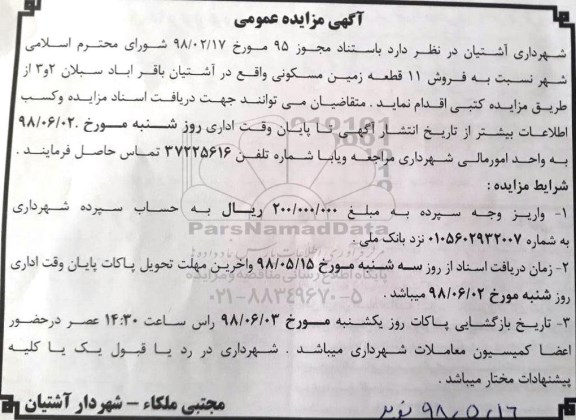 آگهی مزایده عمومی
شهرداری آشتیان در نظر دارد باستناد مجوز ۹۵ مورخ ۹۸/۰۲/۱۷ شورای محترم اسلامی
شهر نسبت به فروش ۱۱ قطعه زمین مسکونی واقع در آشتیان باقر اباد سبلان ۲و۳ از
طریق مزایده کتبی اقدام نماید . متقاضیان می توانند جهت دریافت اسناد مزایده وکسب
اطلاعات بیشتر از تاریخ انتشار آگهی تا پایان وقت اداری روز شنبه مورخ ۹۸/۰۶/۰۲.
به واحد امورمالی شهرداری مراجعه ویابا شماره تلفن ۳۷۲۲۵۶۱۶ تماس حاصل فرمایند .
شرایط مزایده :
۱- واریز وجه سپرده به مبلغ ۲۰۰/۰۰۰/۰۰۰ ریال به حساب سپرده شهرداری
به شماره ۰۱۰۵۶۰۲۹۳۲۰۰۷ نزد بانک ملی .
۲- زمان دریافت اسناد از روز سه شنبه مورخ ۹۸/۰۵/۱۵ واخرین مهلت تحویل پاکات پایان وقت اداری
روز شنبه مورخ ۹۸/۰۶/۰۲ میباشد .
۳- تاریخ بازگشایی پاکات روز یکشنبه مورخ ۹۸/۰۶/۰۳ راس ساعت ۱۴:۳۰ عصر درحضور
اعضا کمیسیون معاملات شهرداری میباشد . شهرداری در رد یا قبول یک یا کلیه
پیشنهادات مختار میباشد .
مجتبی ملکاء – شهردار آشتیان
ParsNamadData
پایگاه اطلاع رسانی مناقصه و مزایده
۰۲۱-۸۸۳۴۹۶۷۰-۵